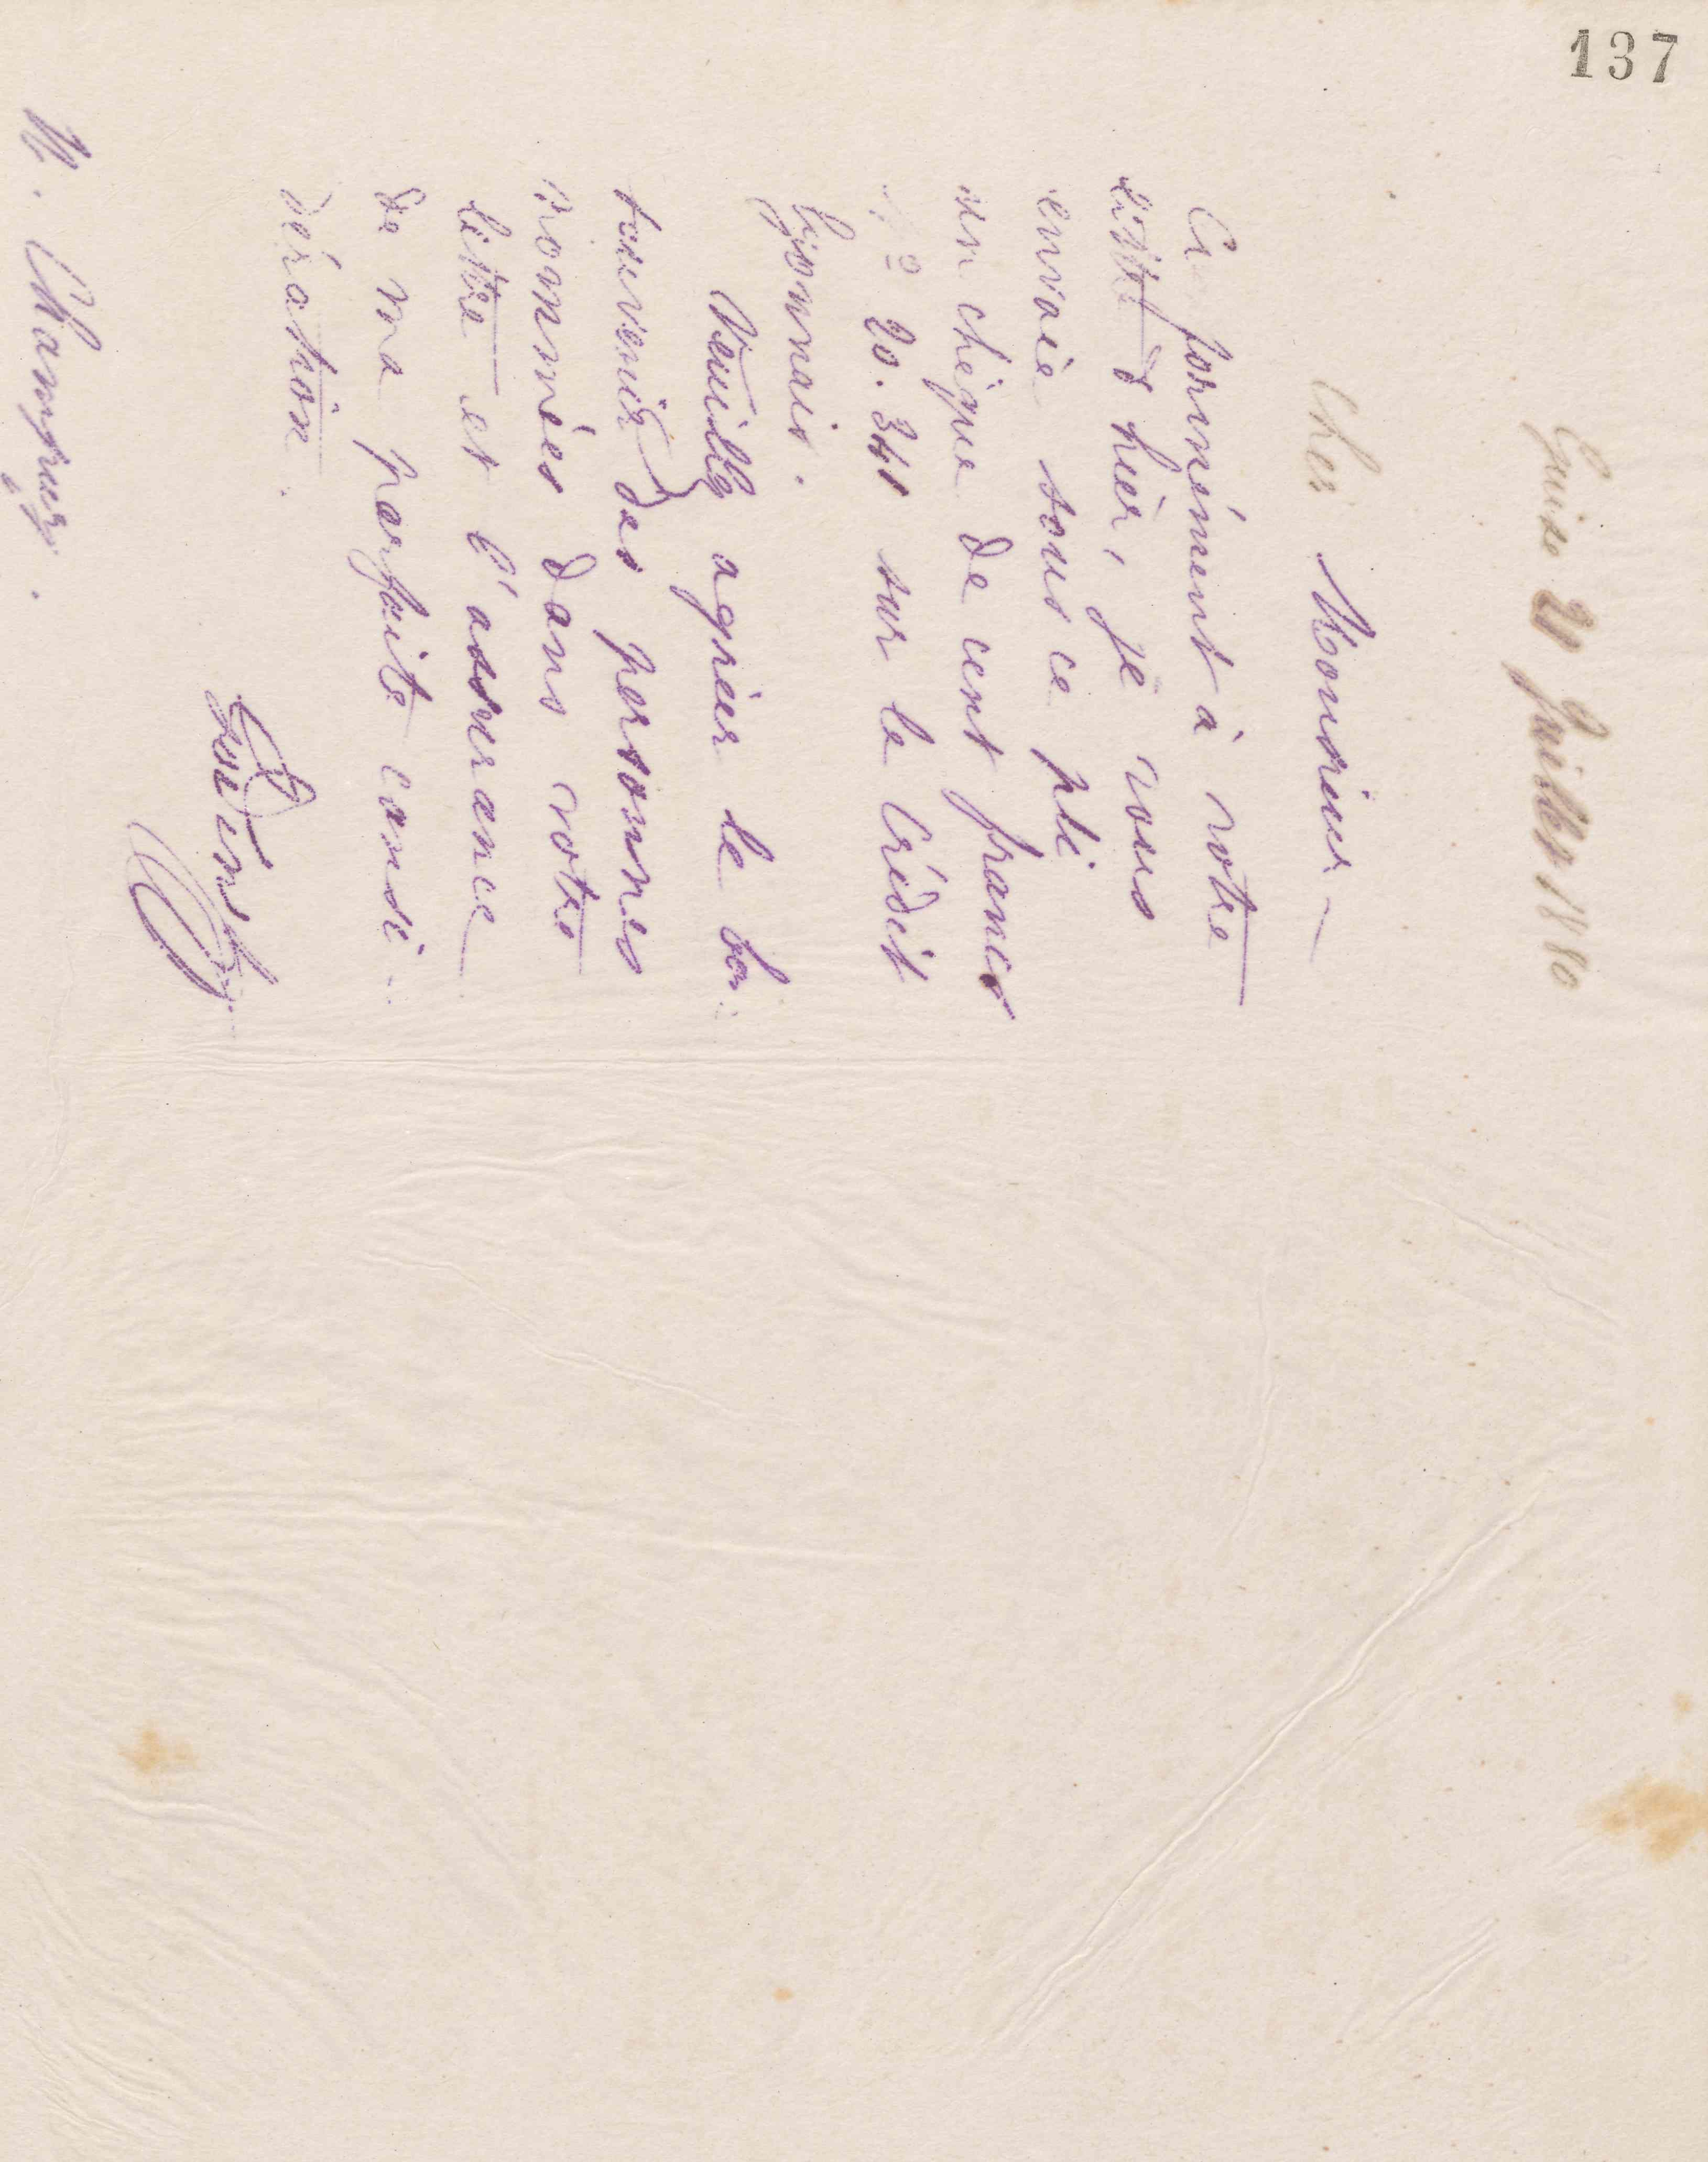 137
Guise 21 Juillet 1880
Cher Monsieur
Conformément à votre
lettre d'hier, je vous
envoie sous ce pli
un chèque de cent francs
n° 20.341 sur le Crédit
Lyonnais.
Veuillez agréer le bon
souvenir des personnes
nommées dans votre
lettre et l'assurance
de ma parfaite consi-
dération.
Godin
M.